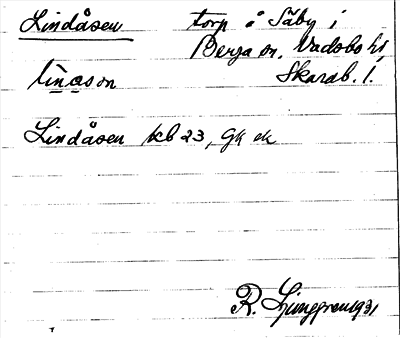 Lindåsen torp å Säby i
Berga sn, Vadsbo hd,
lìnason Skarab. l.
Lindåsen kb 23, Gk ek
R. Ljunggren 1931